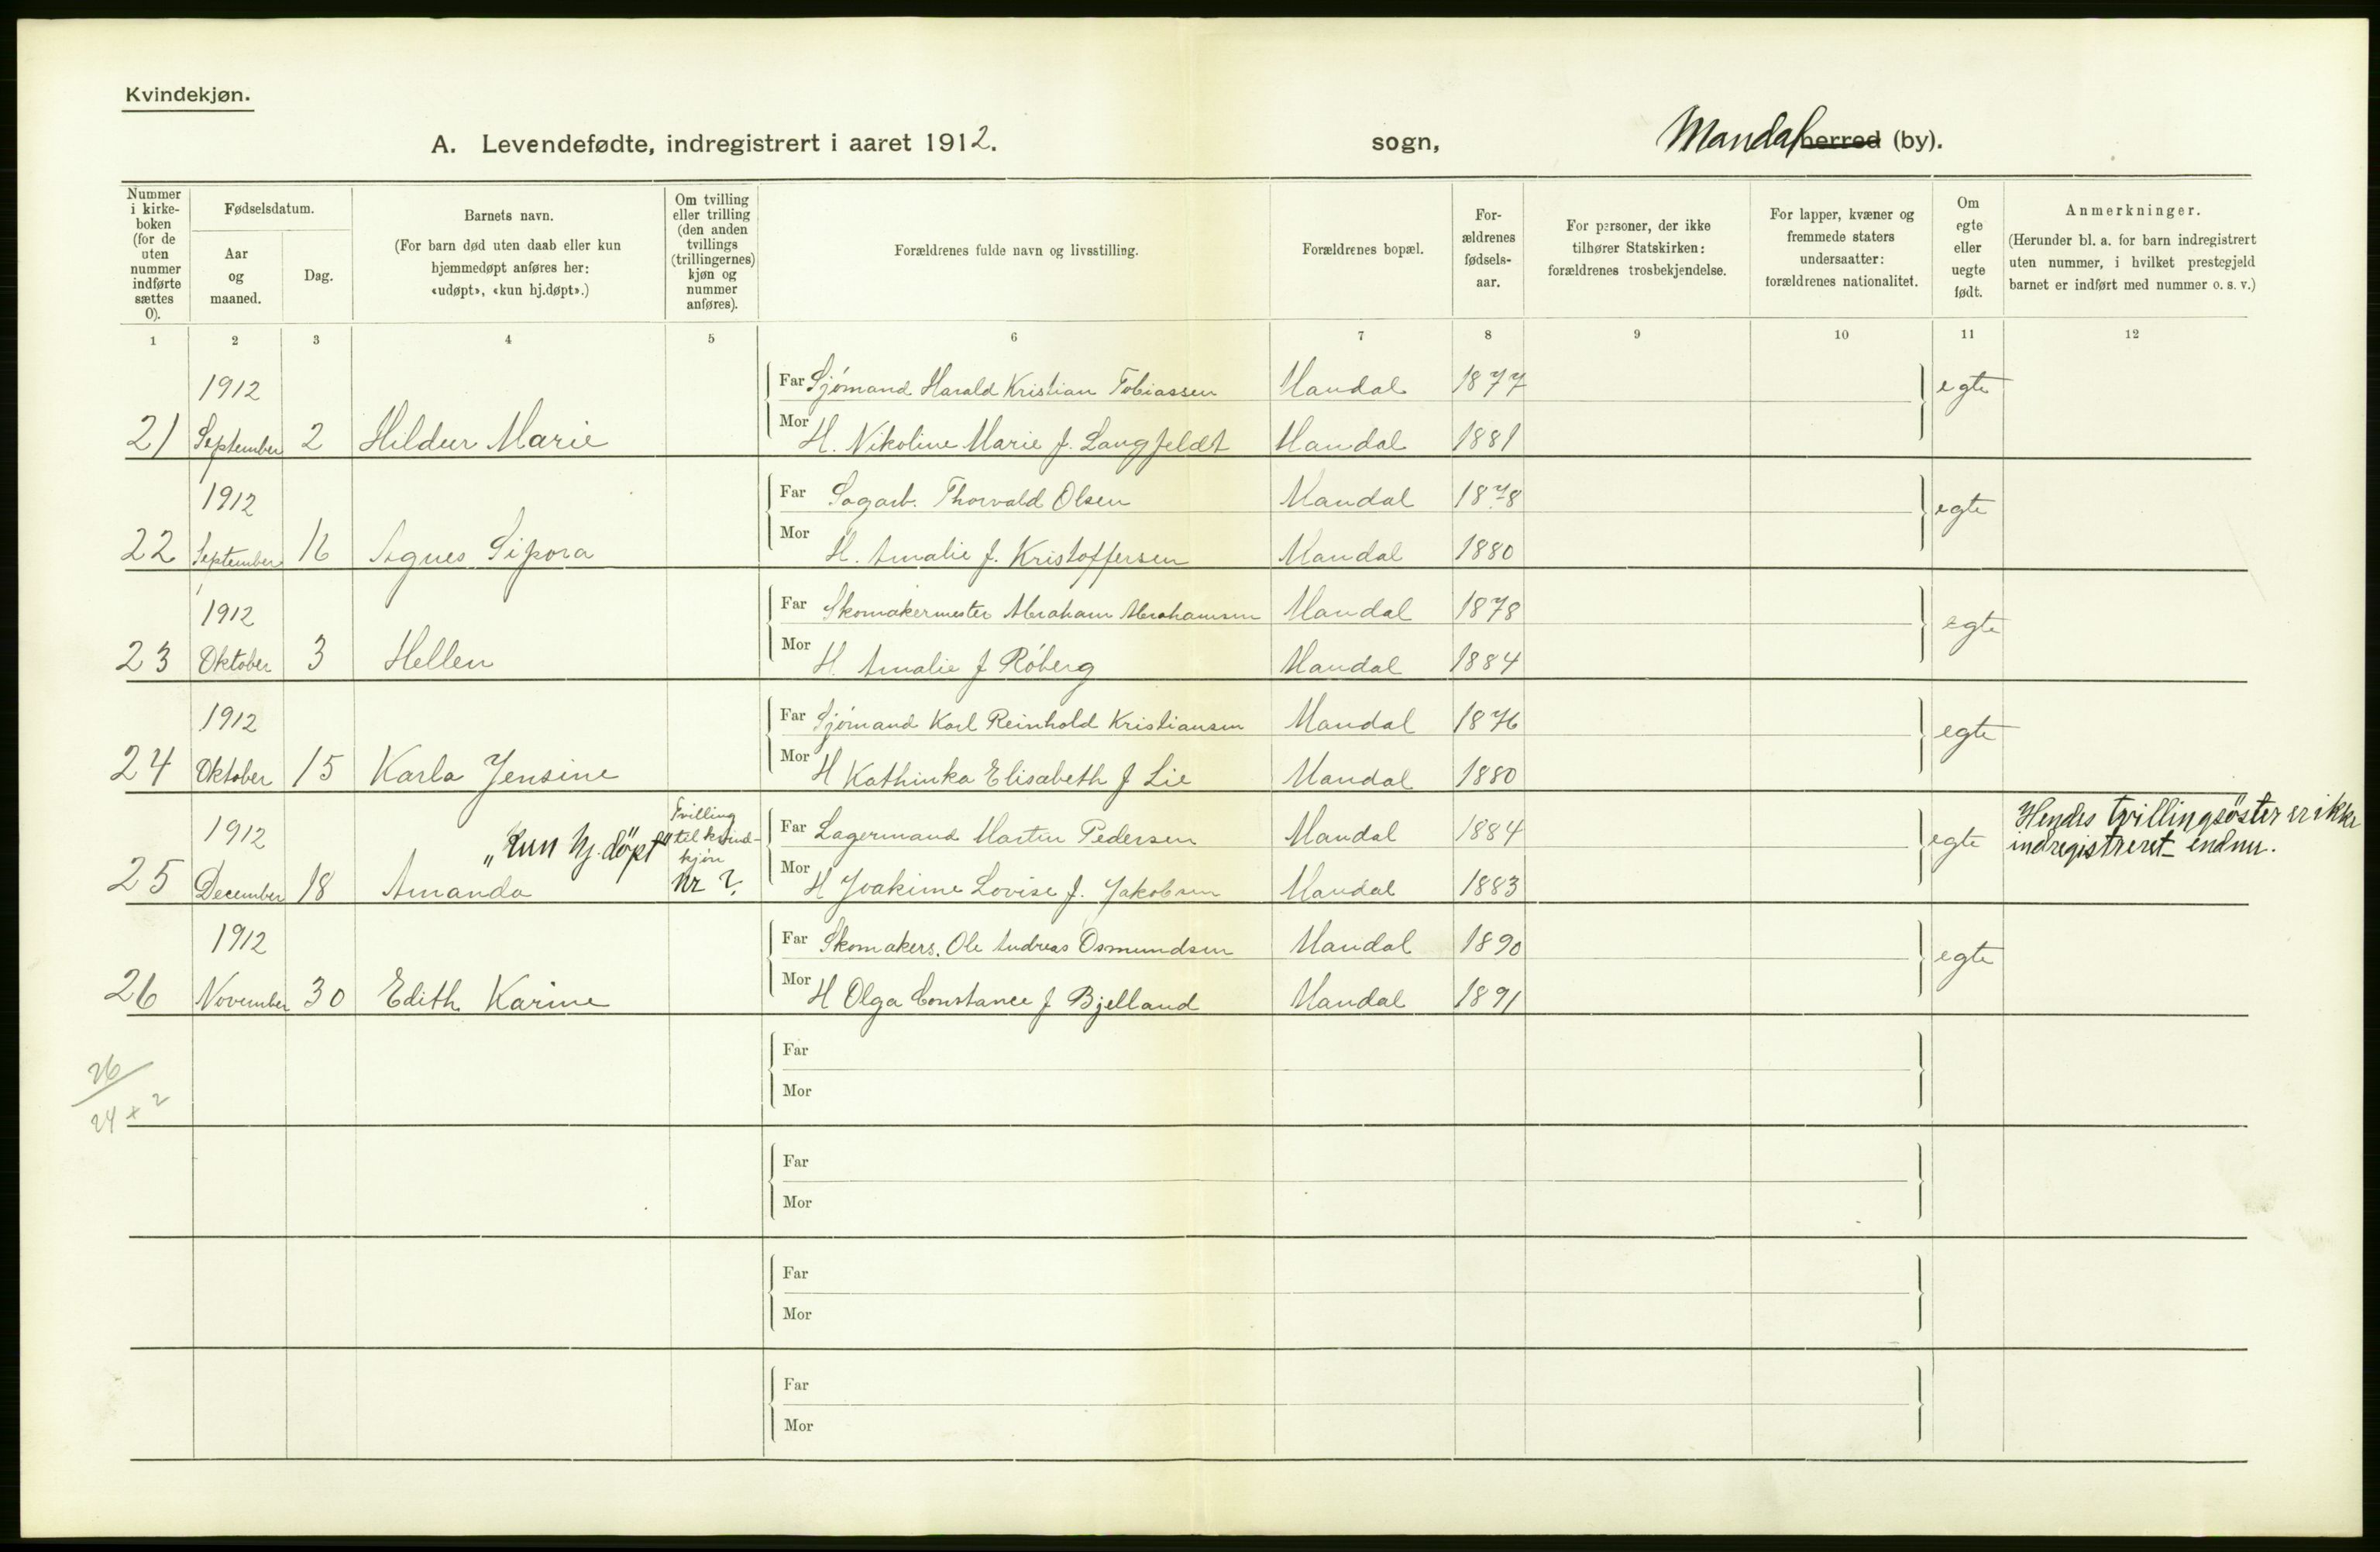 Kvindekjøn.
A. Levendefødte, indregistrert i aaret 1912. sogn, Mandal herred (by).
Nummer i kirke-boken (for de uten nummer indførte sættes 0).
Fødselsdatum.
Aar og maaned.
Dag.
Barnets navn.
(For barn død uten daab eller kun hjemmedøpt anføres her: «udøpt», «kun hj.døpt».)
Om tvilling eller trilling (den anden tvillings (trillingernes) kjøn og nummer anføres).
Forældrenes fulde navn og livsstilling.
Forældrenes bopæl.
For-ældrenes fødsels-aar.
For personer, der ikke tilhører Statskirken: forældrenes trosbekjendelse.
For lapper, kvæner og fremmede staters undersaatter: forældrenes nationalitet.
Om egte eller uegte født.
Anmerkninger.
(Herunder bl. a. for barn indregistrert uten nummer, i hvilket prestegjeld barnet er indført med nummer o. s. v.)
1 2 3 4 5 6 7 8 9 10 11 12
1912 Far Sjömand Harald Kristian Tobiassen Mandal 1877 egte
21 September 2 Hildur Marie Mor H. Nikoline Marie f. Langfeldt Mandal 1881
1912 Far Sagarb. Thorvald Olsen Mandal 1878 egte
22 September 16 Agnes Sipora Mor H. Amalie f. Kristoffersen Mandal 1880
1912 Far Skomakermester Abraham Abrahamsen Mandal 1878 egte
23 Oktober 3 Hellen Mor H. Amalie f Röberg Mandal 1884
1912 Far Sjömand Karl Reinhold Kristiansen Mandal 1876 egte
24 Oktober 15 Karla Jensine Mor H Kathinka Elisabeth f Lie Mandal 1880
1912 „Kun hj. döpt" Tvilling til kvind-kjön Nr ?. Far Lagermand Martin Pedersen Mandal 1884 egte Hendes tvillingsöster er ikke indregistreret endnu.
25 December 18 Amanda Mor H Joakime Lovise f. Jakobsen Mandal 1883
1912 Far Skomakers. Ole Andreas Osmundsen Mandal 1890 egte
26 November 30 Edith Karine Mor H Olga Constance f Bjelland Mandal 1891
26
24 + 2
Far
Mor
Far
Mor
Far
Mor
Far
Mor